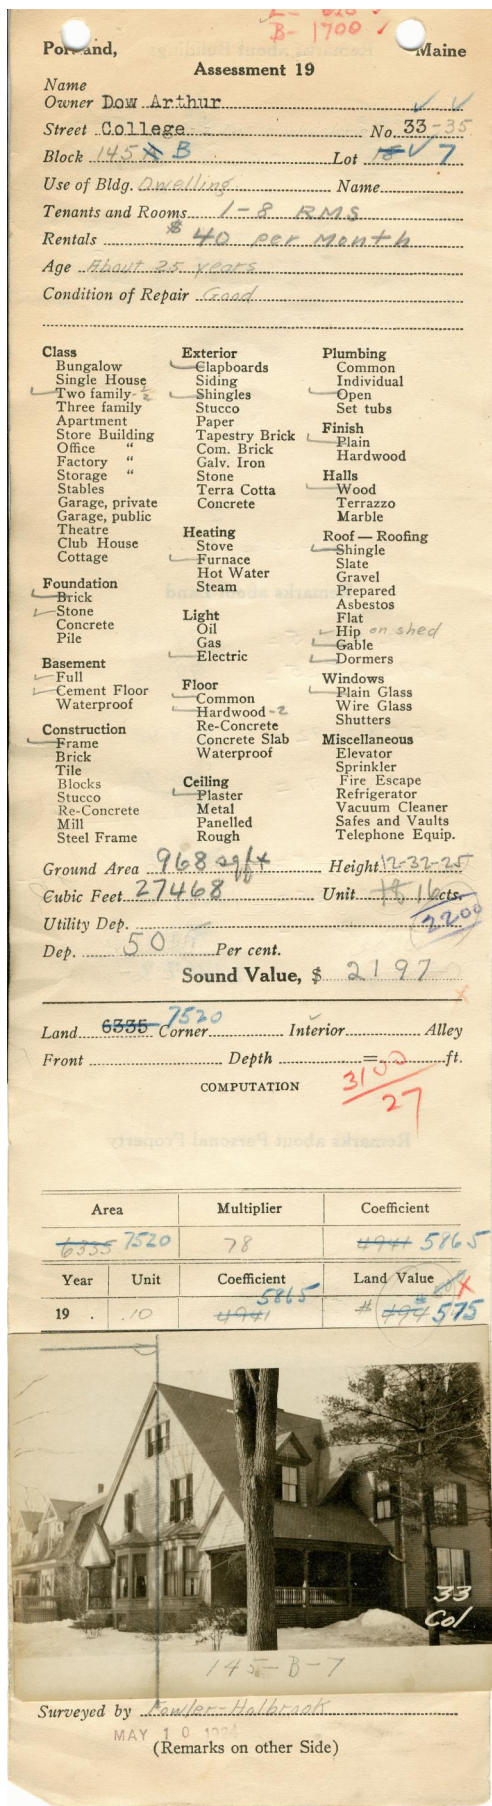 B- 1700 ✓
Portland, Maine
Assessment 19
Name
Owner Dow Arthur
Street College No. 33-35
Block 145 A B Lot 18 7
Use of Bldg. Dwelling Name
Tenants and Rooms 1-8 RMS
Rentals $40 per Month
Age About 25 years
Condition of Repair Good
Class
Bungalow
Single House
Two family-½
Three family
Apartment
Store Building
Office "
Factory "
Storage "
Stables
Garage, private
Garage, public
Theatre
Club House
Cottage
Foundation
Brick
Stone
Concrete
Pile
Basement
Full
Cement Floor
Waterproof
Construction
Frame
Brick
Tile
Blocks
Stucco
Re-Concrete
Mill
Steel Frame
Exterior
Clapboards
Siding
Shingles
Stucco
Paper
Tapestry Brick
Com. Brick
Galv. Iron
Stone
Terra Cotta
Concrete
Heating
Stove
Furnace
Hot Water
Steam
Light
Oil
Gas
Electric
Floor
Common
Hardwood-2
Re-Concrete
Concrete Slab
Waterproof
Ceiling
Plaster
Metal
Panelled
Rough
Plumbing
Common
Individual
Open
Set tubs
Finish
Plain
Hardwood
Halls
Wood
Terrazzo
Marble
Roof — Roofing
Shingle
Slate
Gravel
Prepared
Asbestos
Flat
Hip on shed
Gable
Dormers
Windows
Plain Glass
Wire Glass
Shutters
Miscellaneous
Elevator
Sprinkler
Fire Escape
Refrigerator
Vacuum Cleaner
Safes and Vaults
Telephone Equip.
Ground Area 968 sq ft Height 12-32-25
Cubic Feet 27468 Unit 18 16 cts.
Utility Dep. 2200
Dep. 50 Per cent.
Sound Value, $ 2197
Land 6335 7520 Corner Interior Alley
Front Depth = ft.
COMPUTATION 3100
27
Area Multiplier Coefficient
6335 7520 78 4941 5865
Year Unit Coefficient Land Value
5865
19 . .10 4941 # 494 575
33
Col
145-B-7
Surveyed by Fowler-Holbrook
MAY 10
(Remarks on other Side)